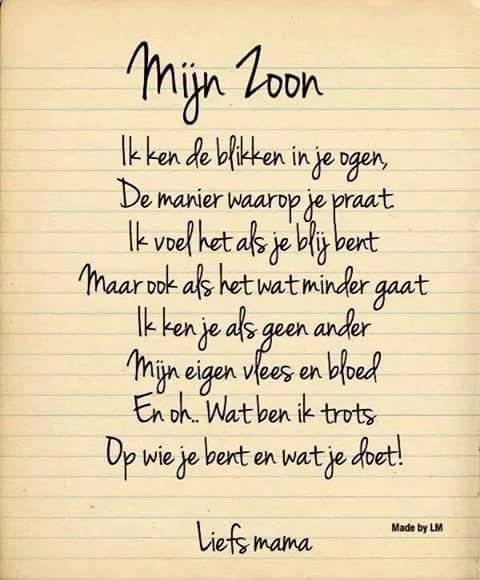 Mijn Zoon
Ik ken de blikken in je ogen,
De manier waarop je praat
Ik voel het als je blij bent
Maar ook als het wat minder gaat
Ik ken je als geen ander
Mijn eigen vlees en bloed
En oh.. Wat ben ik trots
Op wie je bent en wat je doet!
Liefs mama
Made by LM